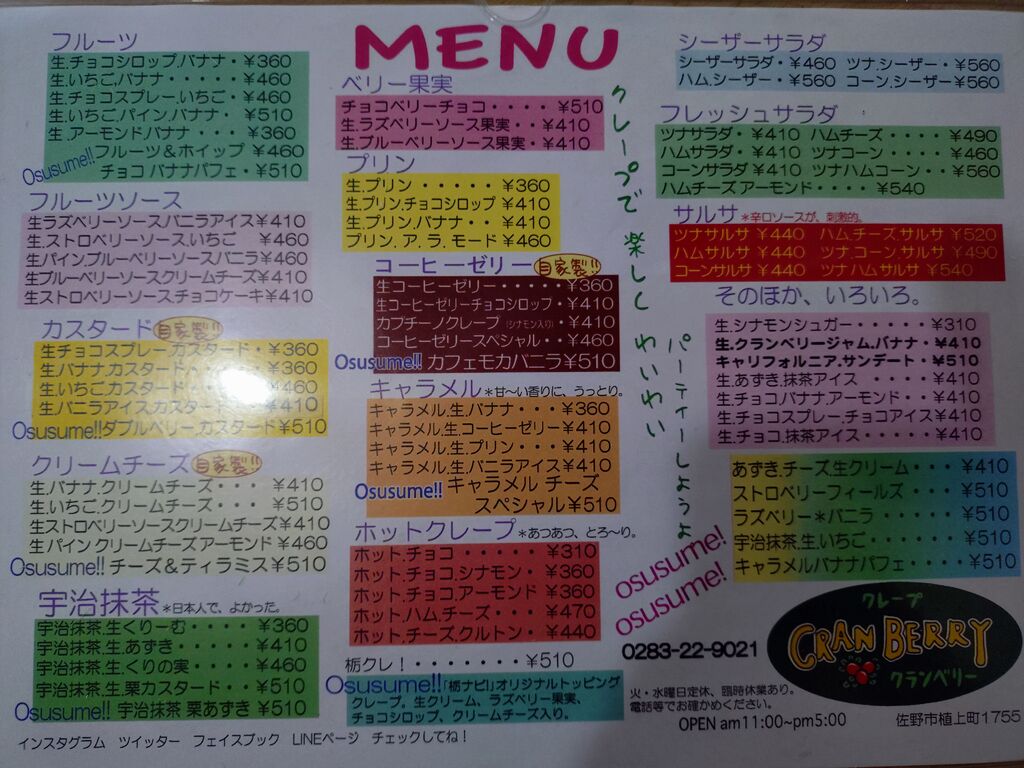 MENU
フルーツ
生.チョコシロップ.バナナ・¥360
生.いちご.バナナ・・・・・¥460
生.チョコスプレー.いちご・¥460
生.いちご.パイン.バナナ・¥510
生.アーモンドバナナ・・・¥360
Osusume!!フルーツ&ホイップ ¥460
チョコ バナナパフェ・¥510
フルーツソース
生ラズベリーソースバニラアイス¥410
生.ストロベリーソース.いちご ¥460
生パインブルーベリーソースバニラ¥460
生ブルーベリーソースクリームチーズ¥410
生ストロベリーソースチョコケーキ¥410
カスタード 自家製!!
生チョコスプレー.カスタード・¥360
生.バナナ.カスタード・・・・¥360
生.いちご.カスタード・・・・¥460
生.バニラアイス.カスタード・¥410
Osusume!!ダブルベリー.カスタード・¥510
クリームチーズ 自家製!!
生.バナナ.クリームチーズ・・・¥410
生.いちご.クリームチーズ・・・¥510
生ストロベリーソースクリームチーズ¥410
生パインクリームチーズアーモンド¥460
Osusume!! チーズ&ティラミス¥510
宇治抹茶 *日本人で、よかった。
宇治抹茶.生くりーむ・・・・¥360
宇治抹茶.生.あずき・・・・・¥410
宇治抹茶.生.くりの実・・・・¥460
宇治抹茶.生.栗カスタード・・¥510
Osusume!! 宇治抹茶 栗あずき ¥510
インスタグラム ツイッター フェイスブック LINEページ チェックしてね!
ベリー果実
チョコベリーチョコ・・・・¥510
生.ラズベリーソース果実・・¥410
生.ブルーベリーソース果実・¥410
プリン
生.プリン・・・・・¥360
生.プリン.チョコシロップ ¥410
生.プリン.バナナ・・¥410
プリン.ア.ラ.モード¥460
コーヒーゼリー 自家製!!
生コーヒーゼリー・・・・・¥360
生コーヒーゼリーチョコシロップ・¥410
カプチーノクレープ(シナモン入り)・¥410
コーヒーゼリースペシャル・・¥460
Osusume!! カフェモカバニラ¥510
キャラメル *甘〜い香りに、うっとり。
キャラメル.生.バナナ・・・¥360
キャラメル.生.コーヒーゼリー¥410
キャラメル.生.プリン・・・¥410
キャラメル.生.バニラアイス¥410
Osusume!! キャラメル チーズ
スペシャル¥510
ホットクレープ *あつあつ、とろ〜り。
ホット.チョコ・・・・・¥310
ホット.チョコ.シナモン・¥360
ホット.チョコ.アーモンド ¥360
ホット.ハム.チーズ・・・¥470
ホット.チーズ.クルトン・¥440
栃クレ!・・・・・・・¥510
Osusume!!「栃ナビ!」オリジナルトッピング
クレープ。生クリーム、ラズベリー果実、
チョコシロップ、クリームチーズ入り。
クレープで 楽しく わいわい
パーティーしようよ
シーザーサラダ
シーザーサラダ・¥460 ツナ.シーザー・¥560
ハム.シーザー・¥560 コーン.シーザー¥560
フレッシュサラダ
ツナサラダ・¥410 ハムチーズ・・・・¥490
ハムサラダ・¥410 ツナコーン・・・・¥460
コーンサラダ ¥410 ツナハムコーン・・¥560
ハムチーズ アーモンド・・・・¥540
サルサ *辛口ソースが、刺激的。
ツナサルサ ¥440 ハム.チーズ.サルサ ¥520
ハムサルサ ¥440 ツナ.コーン.サルサ ¥490
コーンサルサ ¥440 ツナハムサルサ ¥540
そのほか、いろいろ。
生.シナモンシュガー・・・・・¥310
生.クランベリージャム.バナナ・¥410
キャリフォルニア.サンデート・¥510
生.あずき.抹茶アイス ・・・・¥410
生.チョコバナナ.アーモンド・・¥410
生.チョコスプレー.チョコアイス¥410
生.チョコ.抹茶アイス・・・・・¥410
あずき.チーズ生クリーム・・・¥410
ストロベリーフィールズ・・・・¥510
ラズベリー*バニラ・・・・・¥510
宇治抹茶.生.いちご・・・・・¥510
キャラメルバナナパフェ・・・・¥510
osusume!
osusume!
0283-22-9021
クレープ
CRAN BERRY
クランベリー
火・水曜日定休、臨時休業あり。
電話等でお確かめください。
OPEN am11:00~pm5:00
佐野市植上町1755